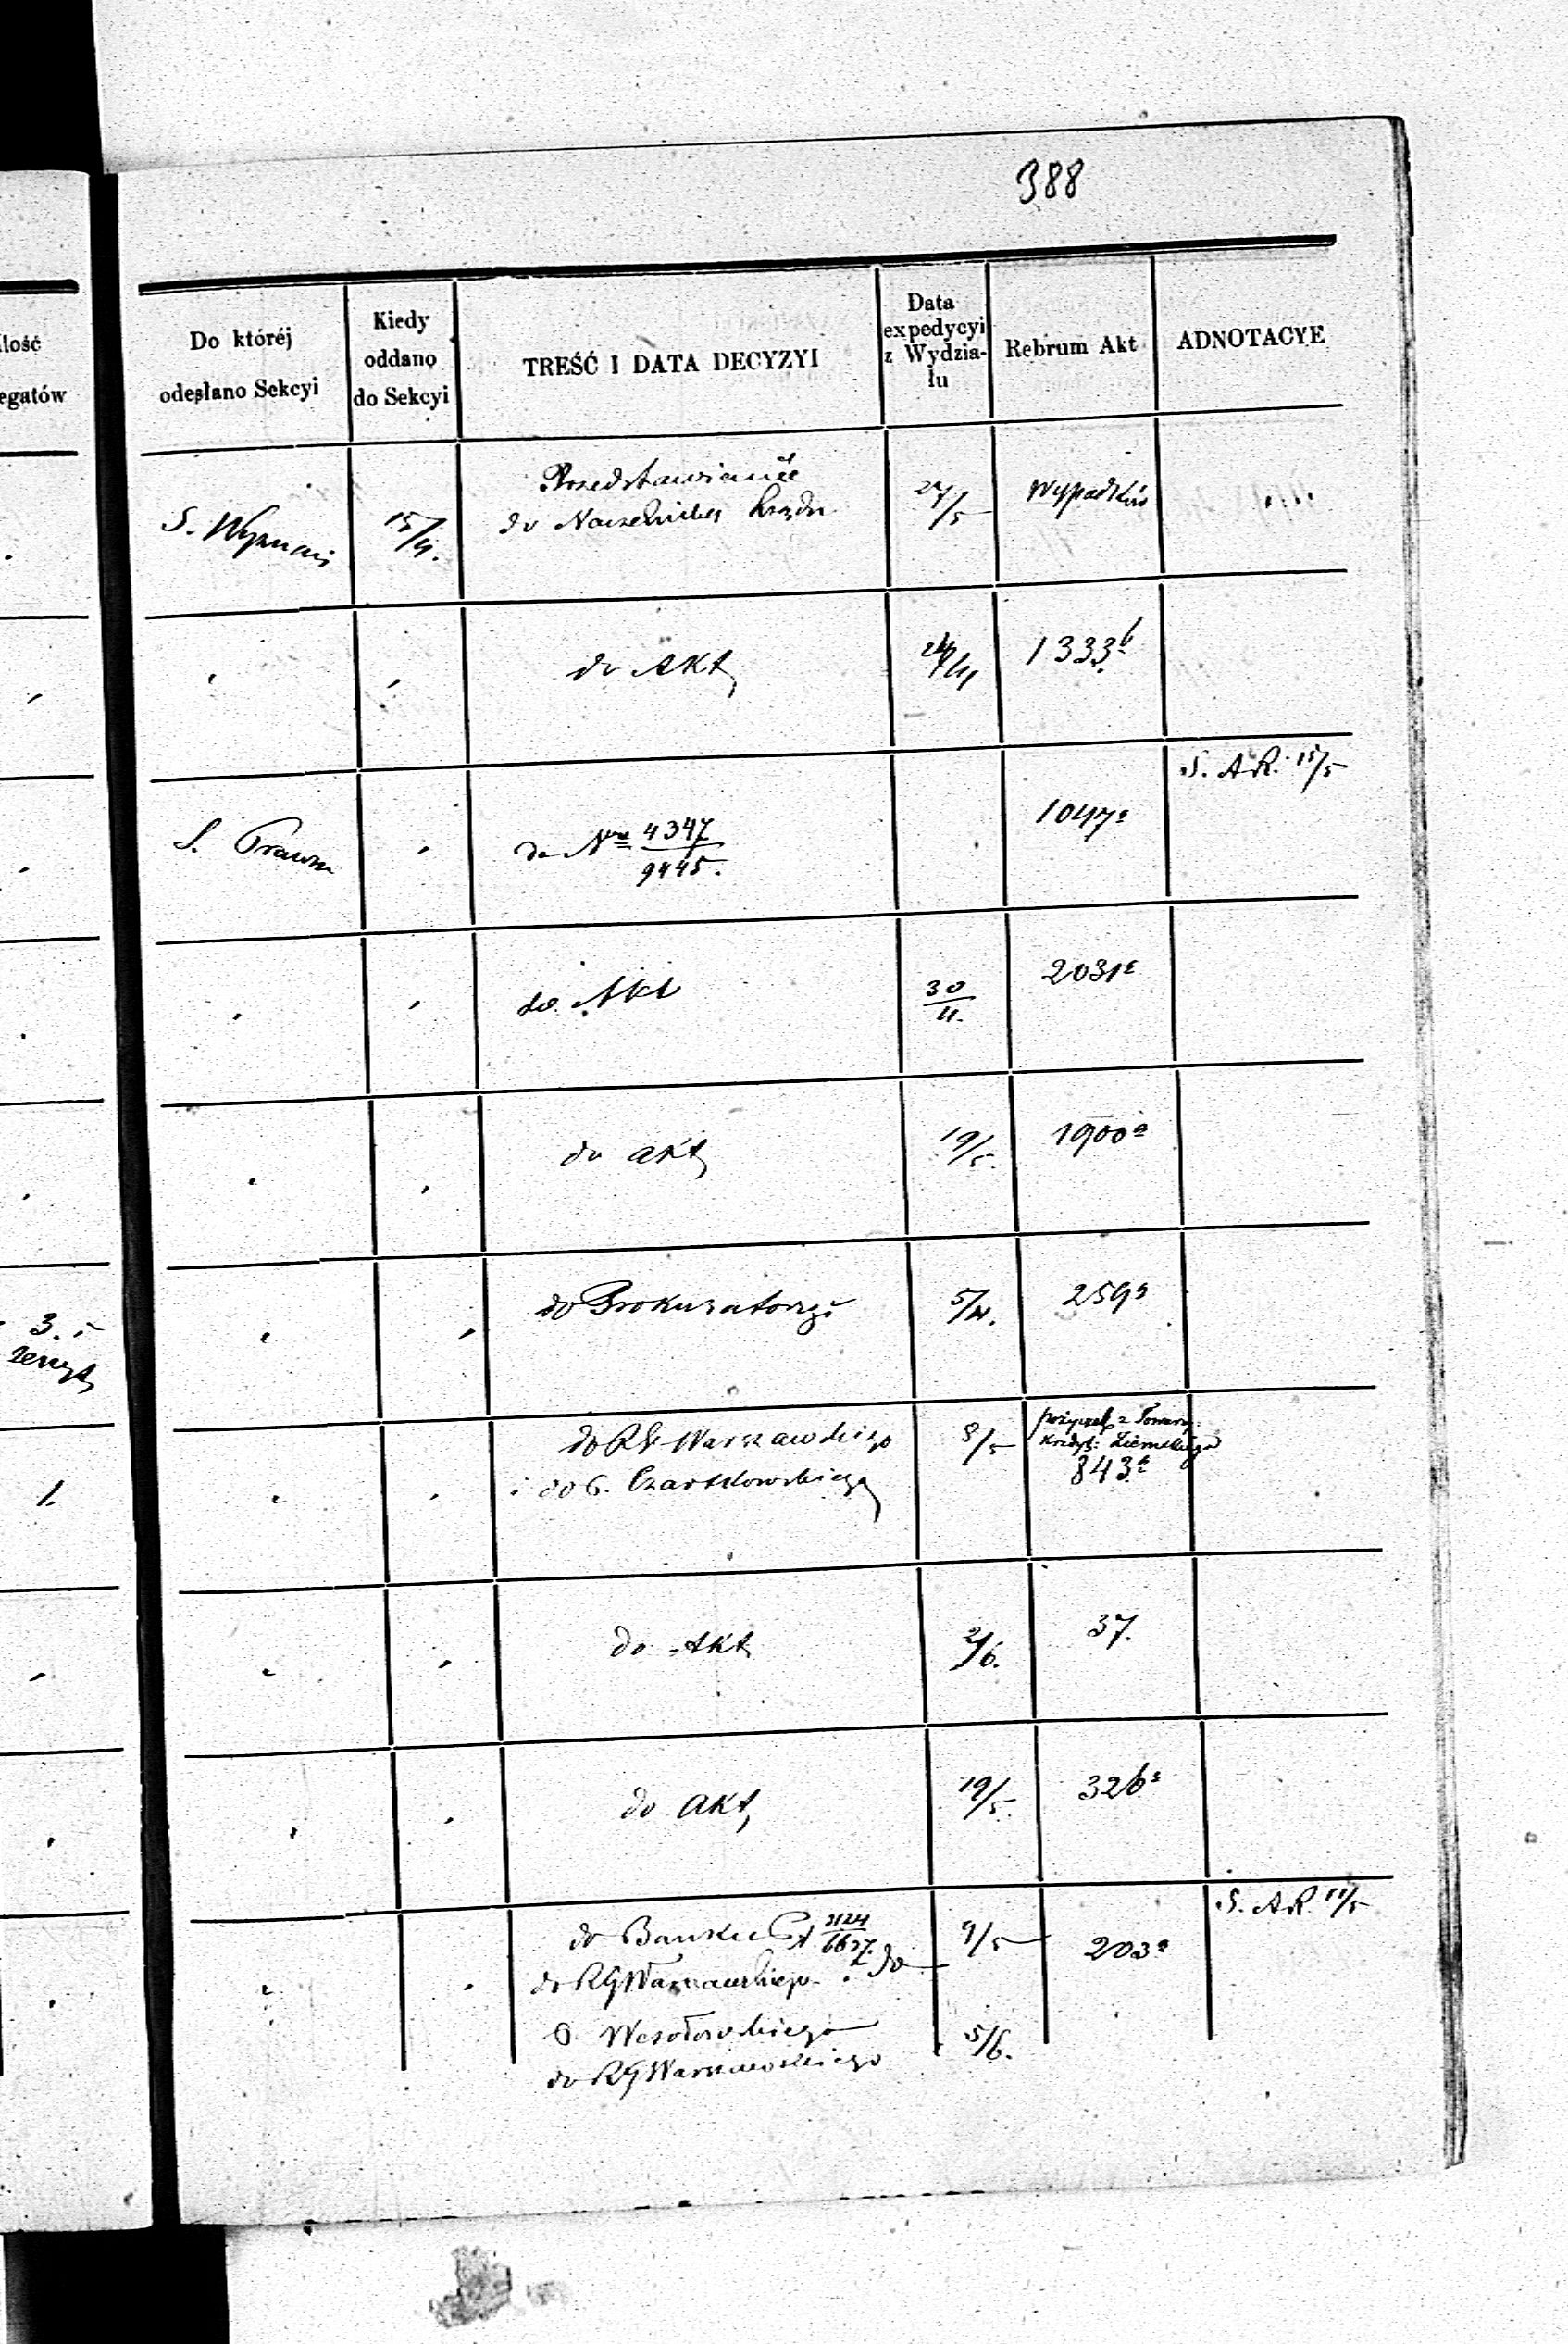 388
Ilość
egatów
Do któréj
odesłano Sekcyi
Kiedy
oddano
do Sekcyi
TREŚĆ I DATA DECYZYI
Data
expedycyi
z Wydzia-
łu
Rebrum Akt
ADNOTACYE
S. Wyznań
15/4.
Przedstawienie
do Naczelnika Rządu
27/5
Wypadków
do Akt
1333
S. Prawna
do Nru 4347
9445.
1047a
S. A.R. 15/5
do Akt
30
4.
2031
do akt
19/5.
1900a
3. i
zeszyt
do Prokuratoryi
5/4.
259a
1.
do RG Warszawskiego
i do G. Czartkowskiego
8/5
pożyczek z Towarz.
Kredyt: Ziemskiego
843a
do Akt
2/6.
37.
do akt
19/5.
326a
do Banku
do RG Warszawskiego i do
G. Wesołowskiego
do RG Warszawskiego
9/5
5/6.
203a
S. A.R. 11/5